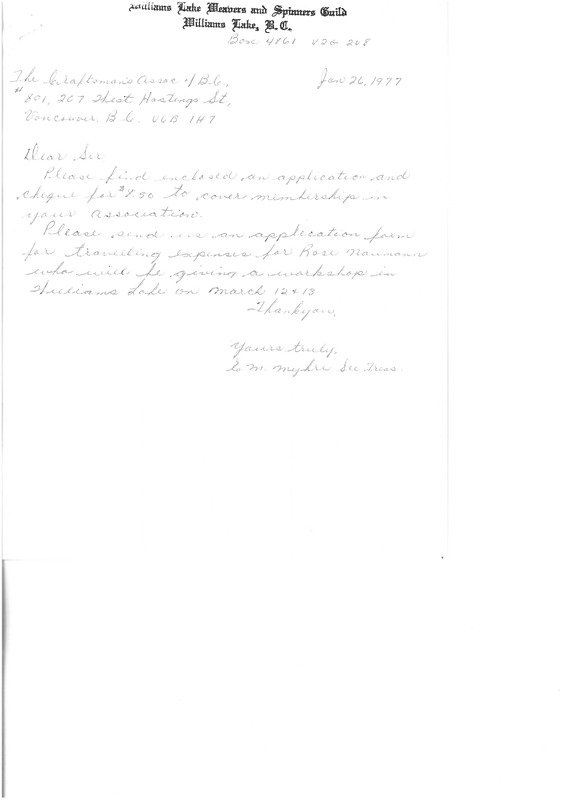 Williams Lake Weavers and Spinners Guild
Williams Lake, B.C.
Box 4861 V2G 2V8
The Craftsman's Assoc of B.C, Jan 26, 1977
#801, 207 West Hastings St,
Vancouver B.C. V6B 1H7
Dear Sir
Please find enclosed an application and
cheque for to cover membership in
your Association.
Please send us an application form
for travelling expenses for Rose Naumann
who will be giving a workshop in
Williams Lake on March 12 & 13
Thankyou,
Yours truly,
M. Myhre Sec. Treas.